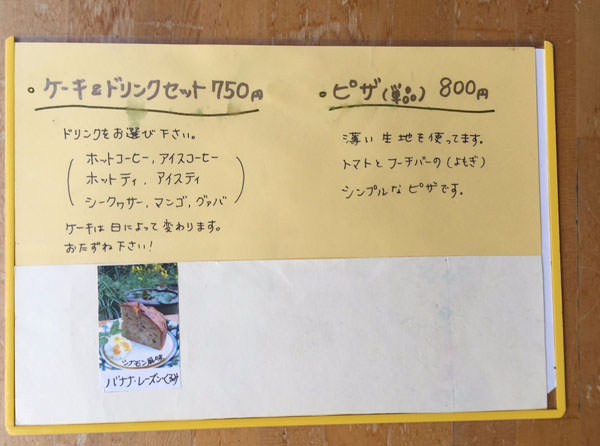 。ケーキ&ドリンクセット 750円
ドリンクをお選び下さい。
ホットコーヒー, アイスコーヒー
ホットティ, アイスティ
シークヮサー, マンゴ, グァバ
ケーキは日によって変わります。
おたずね下さい!
。ピザ(単品) 800円
薄い生地を使ってます。
トマトとフーチバーの(よもぎ)
シンプルなピザです。
シナモン風味
バナナ・レーズン・くるみ